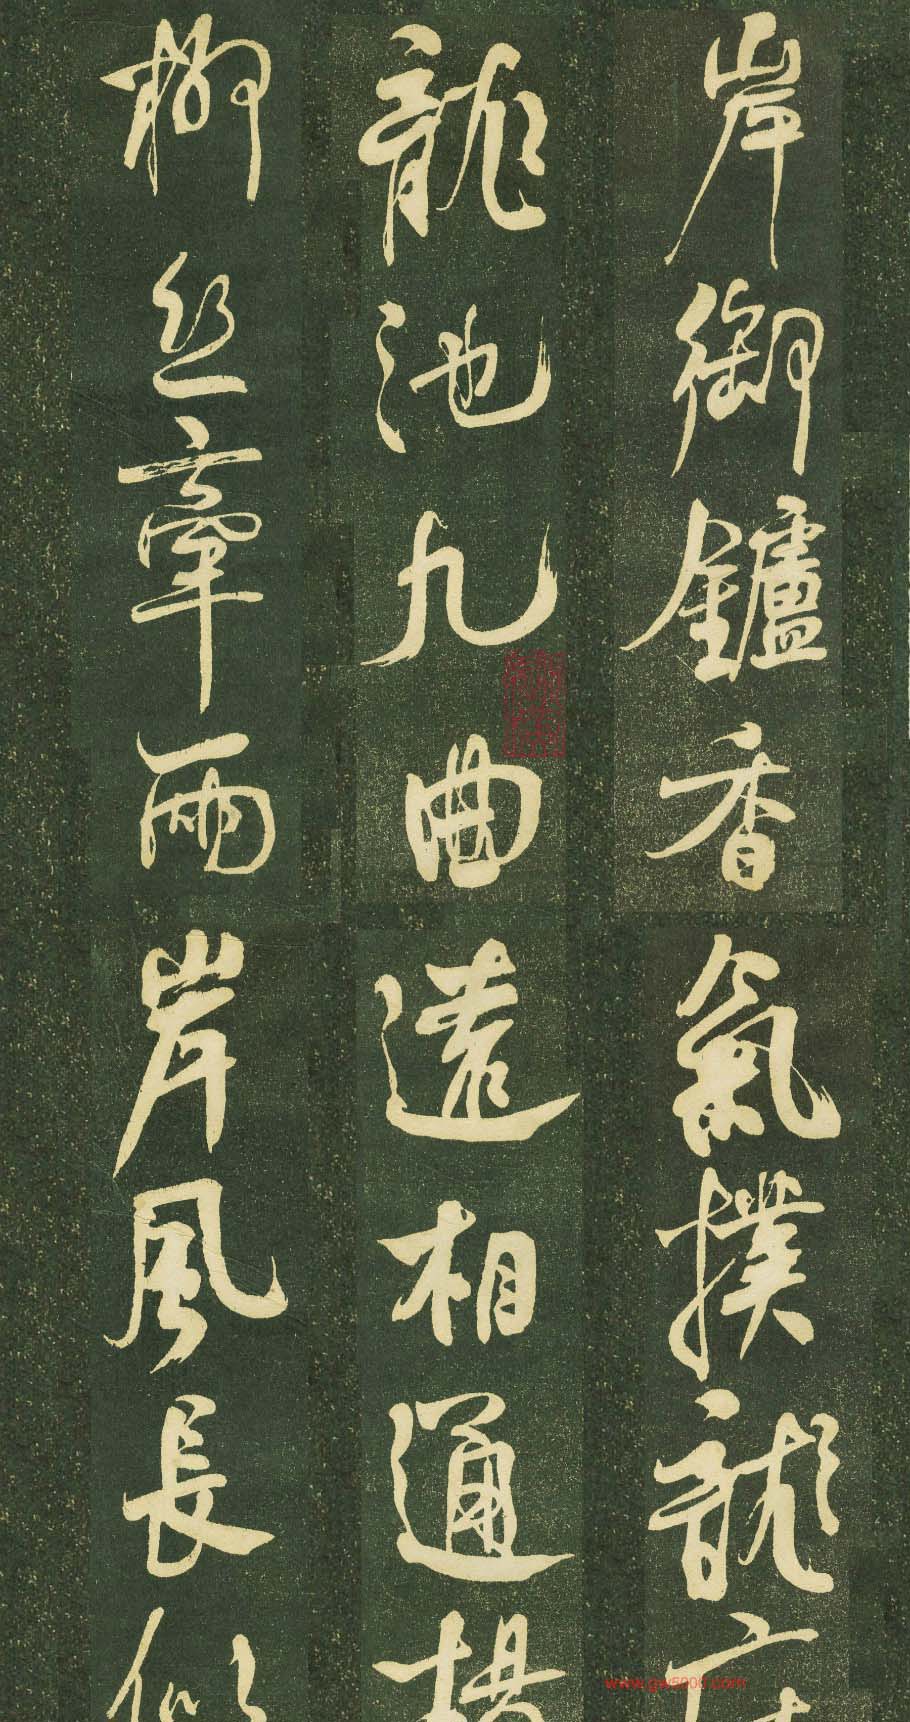 岸御鑪香氣撲龍床
龍池九曲遠相通楊
柳絲牽兩岸風長似
www.gw5000.com